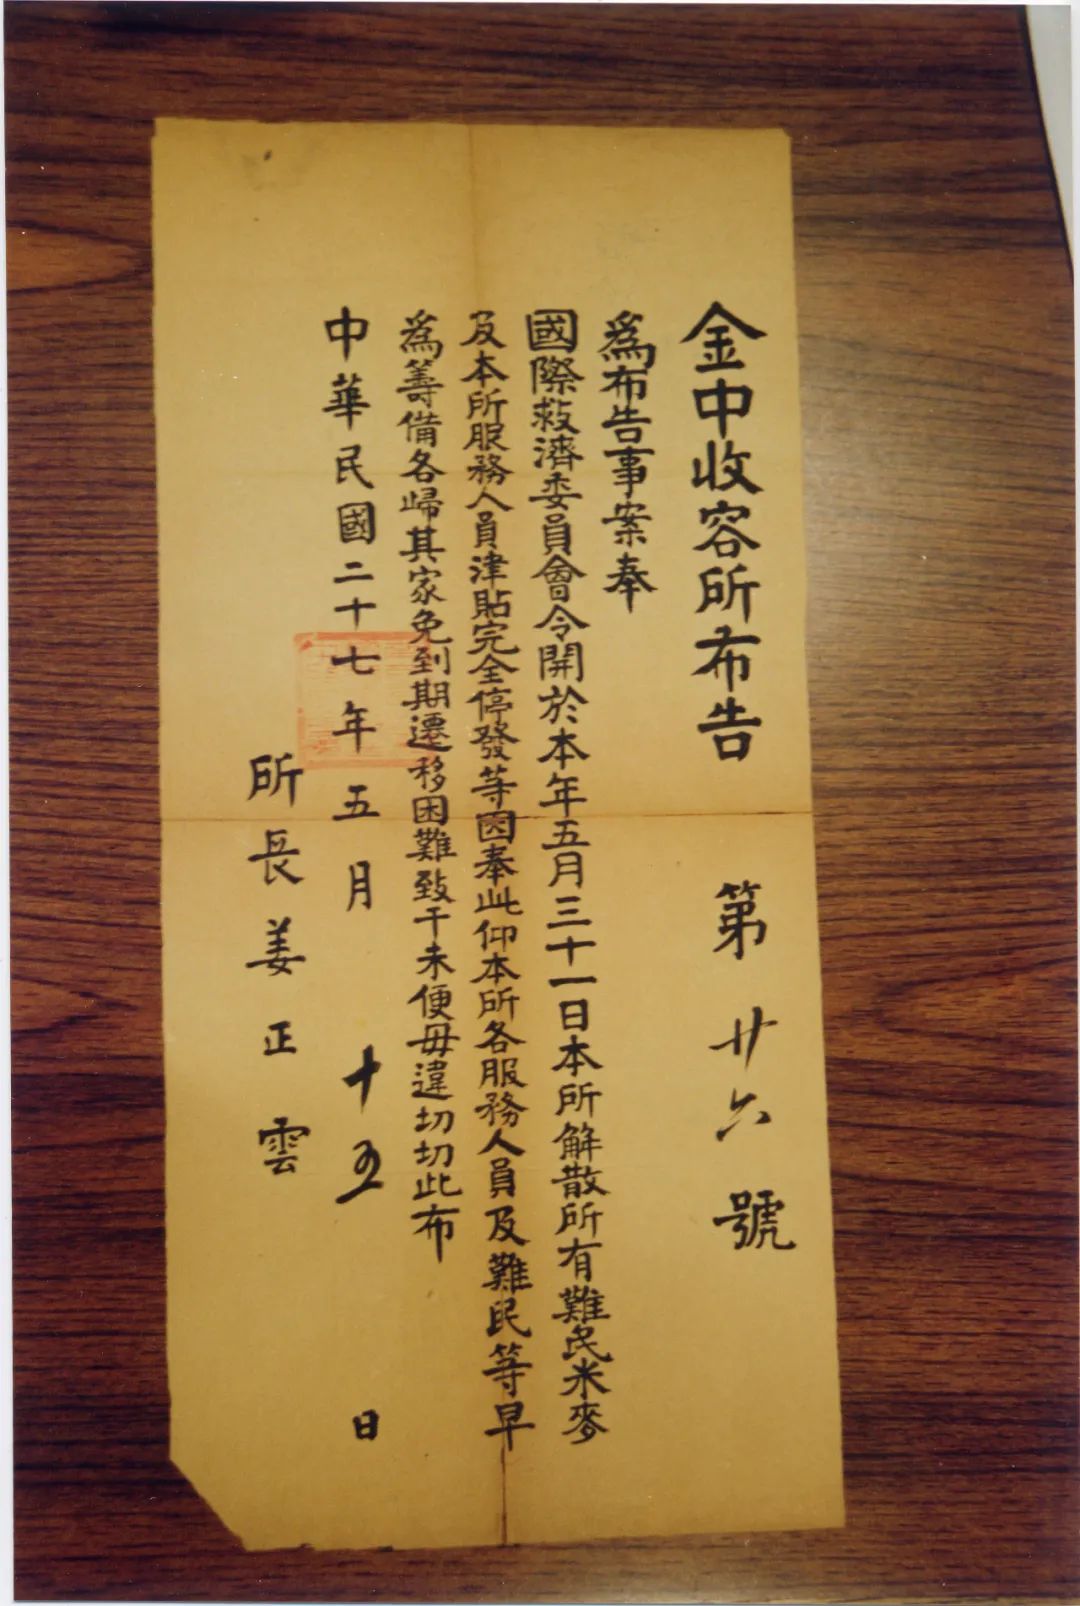 金中收容所布告　第廿六號
為布告事案奉
國際救濟委員會令開於本年五月三十一日本所解散所有難民米麥
及本所服務人員津貼完全停發等因奉此仰本所各服務人員及難民等早
為籌備各歸其家免到期遷移困難致干未便毋違切切此布
中華民國二十七年五月十五日
所長姜正雲